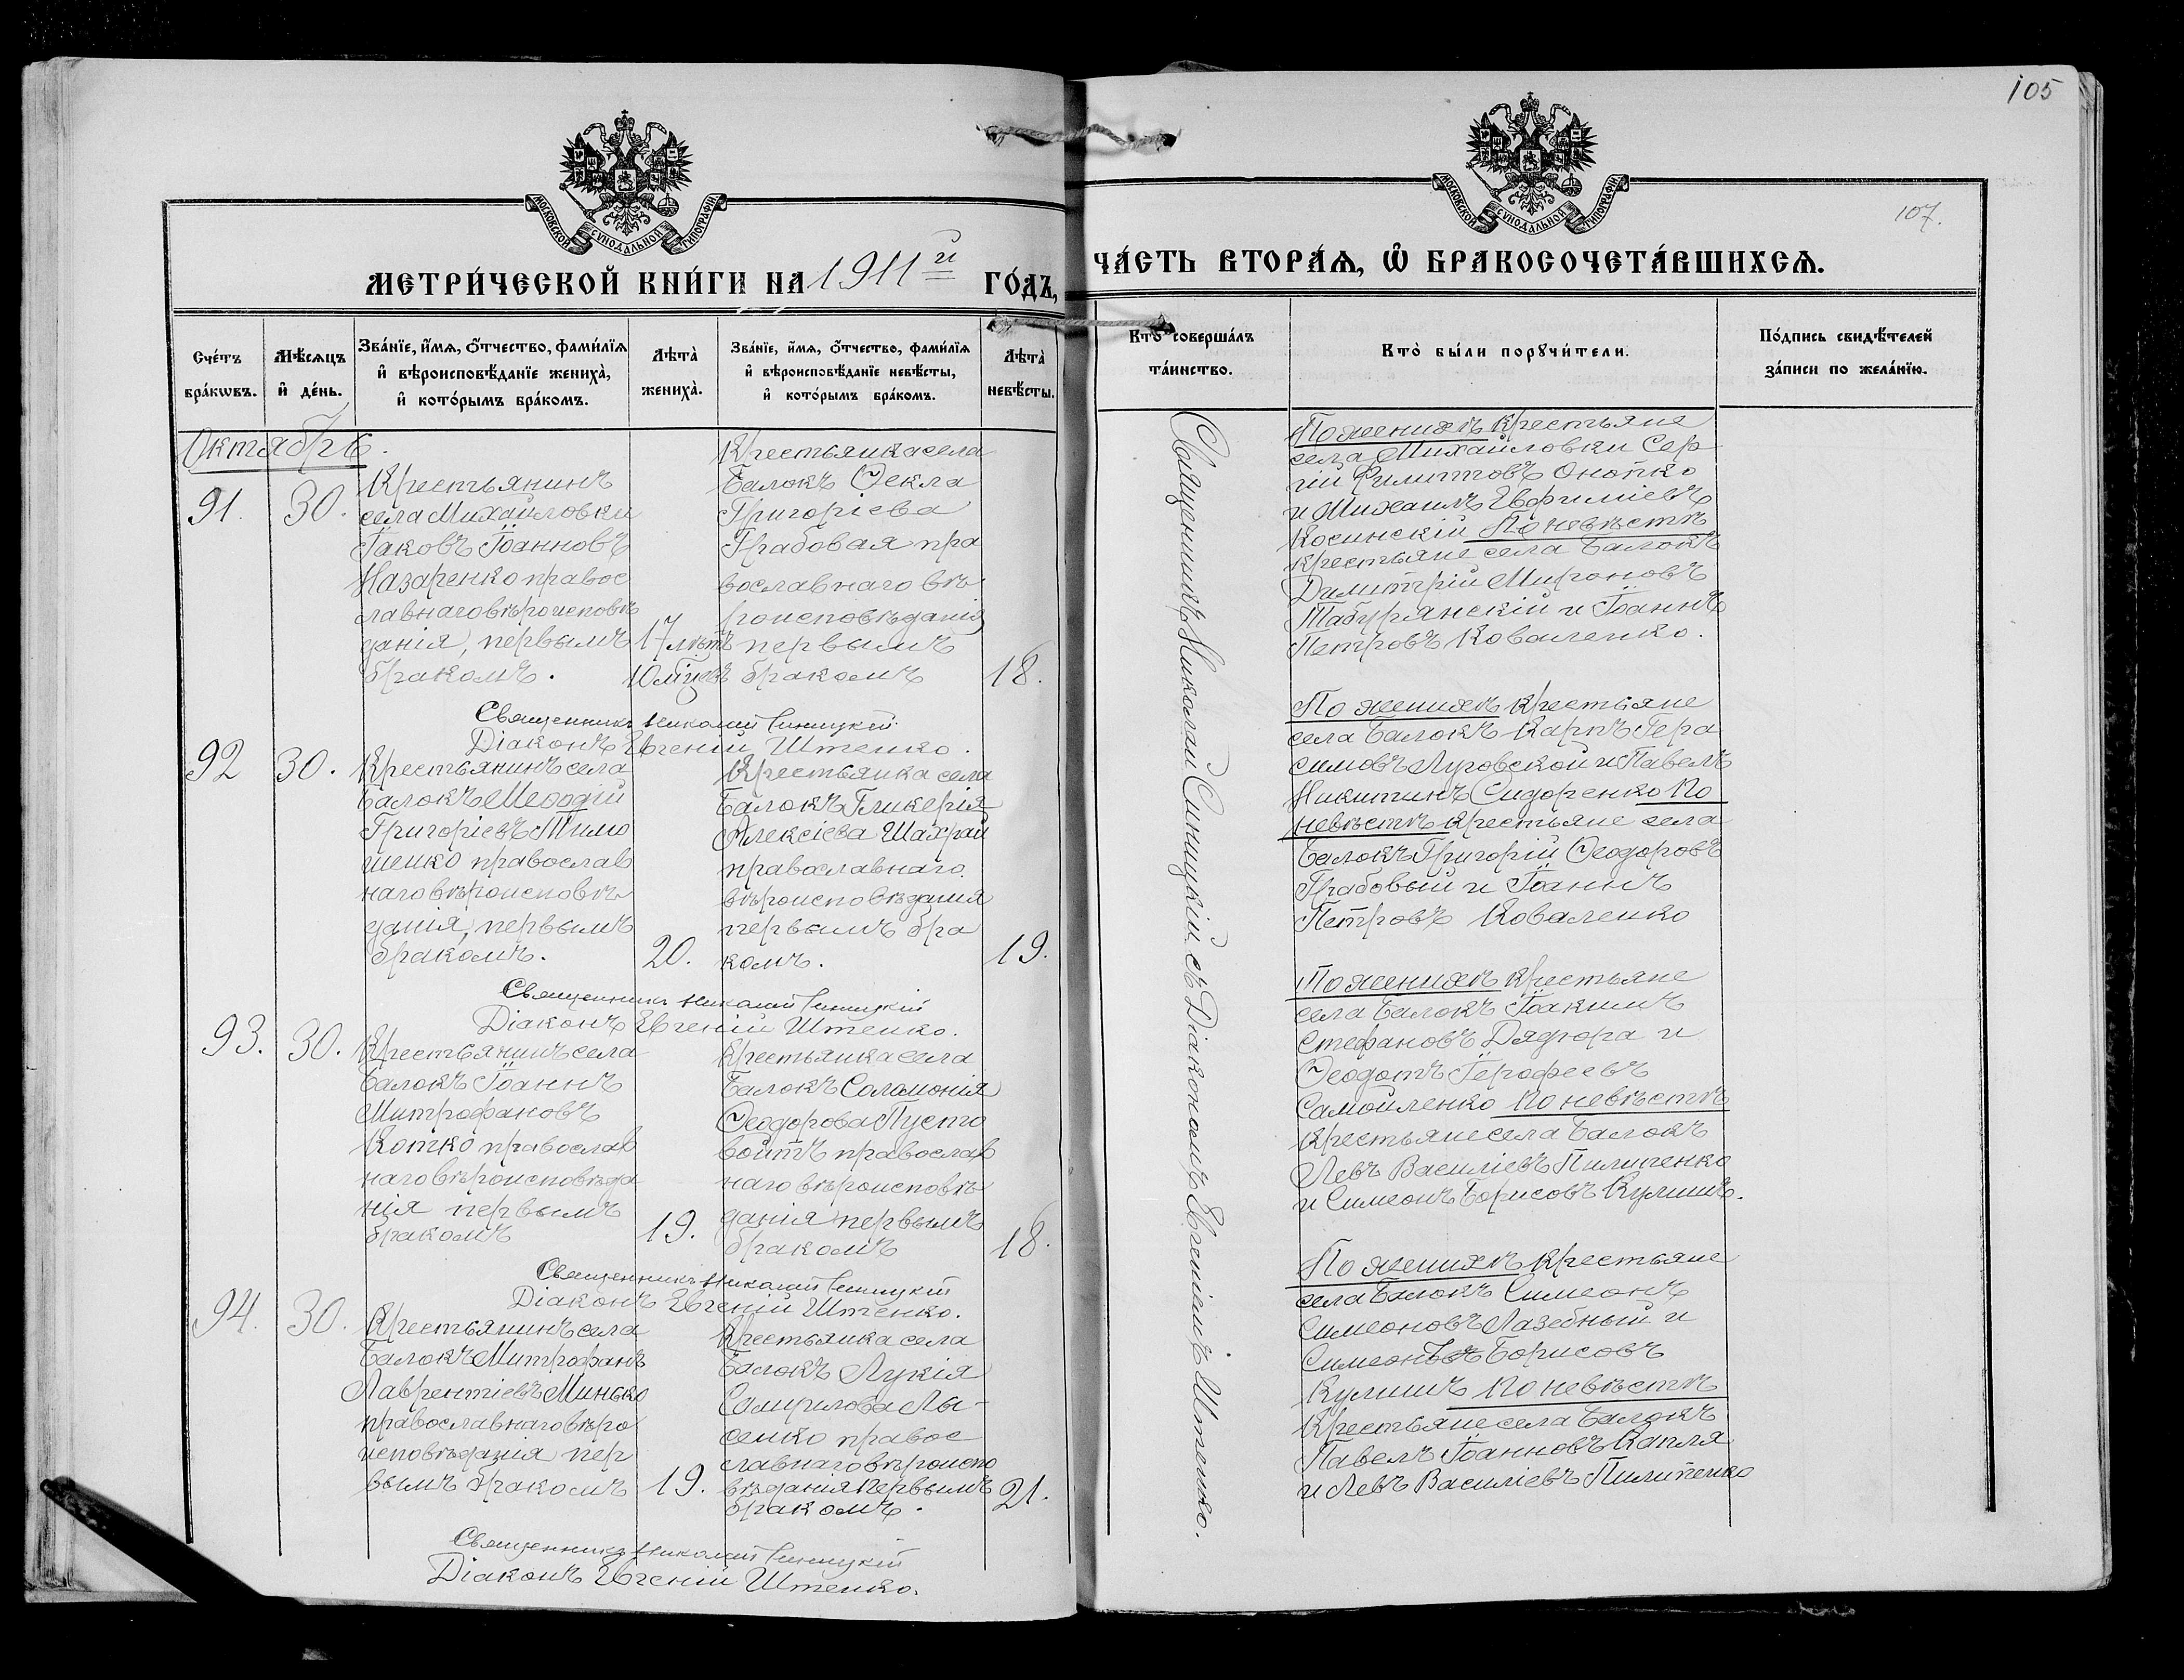 105
107.
МОСКОВСКОЙ СѴНОДАЛЬНОЙ ТИПОГРАФІИ
МЕТРИ́ЧЕСКОЙ КНИ́ГИ НА 1911й ГО́ДЪ,
Сче́тъ бра́кѡвъ.
Мѣ́сѧцъ и҆ де́нь.
Зва́нїе, и҆́мѧ, ѻ҆́тчество, фами́лїѧ
и҆ вѣроисповѣ́данїе жениха̀,
и҆ кото́рымъ бра́комъ.
Лѣта̀ жениха̀.
Зва́нїе, и҆́мѧ, ѻ҆́тчество, фами́лїѧ
и҆ вѣроисповѣ́данїе невѣ́сты,
и҆ кото́рымъ бра́комъ.
Лѣта̀ невѣ́сты.
Октябрь.
91.
30.
Крестьянинъ
села Михайловки
Іаковъ Іоанновъ
Назаренко правос
лавнаго вѣроисповѣ
данія, первымъ
бракомъ.
17 лѣтъ
10 мѣсяцевъ
Крестьянка села
Балокъ Ѳекла
Григоріева
Грабовая пра
вославнаго вѣ
роисповѣданія
первымъ
бракомъ
18.
Священникъ Николай Синицкій
Діаконъ Евгеній Штепко.
92
30.
Крестьянинъ села
Балокъ Меѳодій
Григоріевъ Тимо
шенко православ
наго вѣроисповѣ
данія, первымъ
бракомъ.
20.
Крестьянка села
Балокъ Гликерія
Алексіева Шахрай
православнаго
вѣроисповѣданія
первымъ бра
комъ.
19.
Священникъ Николай Синицкій
Діаконъ Евгеній Штепко.
93.
30.
Крестьянинъ села
Балокъ Іоаннъ
Митрофановъ
Котко православ
наго вѣроисповѣда
нія первымъ
бракомъ
19.
Крестьянка села
Балокъ Соломонія
Ѳеодорова Пусто
войтъ православ
наго вѣроисповѣ
данія первымъ
бракомъ
18.
Священникъ Николай Синицкій
Діаконъ Евгеній Штепко.
94.
30.
Крестьянинъ села
Балокъ Митрофанъ
Лаврентіевъ Минько
православнаго вѣро
исповѣданія пер
вымъ бракомъ
19.
Крестьянка села
Балокъ Лукія
Лы-
сенко правос
лавнаго вѣроиспо
вѣданія первымъ
бракомъ.
21.
Священникъ Николай Синицкій
Діаконъ Евгеній Штепко.
МОСКОВСКОЙ СѴНОДАЛЬНОЙ ТИПОГРАФІИ
ЧА́СТЬ ВТОРА́Ѧ, Ѽ БРАКОСОЧЕТА́ВШИХСѦ.
Кто̀ соверша́лъ та́инство.
Кто̀ бы́ли порꙋчи́тели.
По́дпись свидѣ́телей за́писи по жела́нїю.
Священникъ Николай Синицкій съ Діакономъ Евгеніемъ Штепко.
По женихѣ Крестьяне
села Михайловки Сер
гій Филипповъ Онопко
и Михаилъ Евфиміевъ
Косинскій По невѣстѣ
Крестьяне села Балокъ
Димитрій Мироновъ
Табурянскій и Іоаннъ
Петровъ Коваленко.
По женихѣ Крестьяне
села Балокъ Карпъ Гера
симовъ Луговской и Павелъ
Никитинъ Сидоренко По
невѣстѣ Крестьяне села
Балокъ Григорій Ѳеодоровъ
Грабовый и Іоаннъ
Петровъ Коваленко
По женихѣ Крестьяне
села Балокъ Іоакимъ
Стефановъ Дядюра и
Ѳеодотъ Іерофеевъ
Самойленко По невѣстѣ
Крестьяне села Балокъ
Левъ Василіевъ Пилипенко
и Симеонъ Борисовъ Кулишъ.
По женихѣ Крестьяне
села Балокъ Симеонъ
Симеоновъ Лазебный и
Симеонъ Борисовъ
Кулишъ По невѣстѣ
Крестьяне села Балокъ
Павелъ Іоанновъ Капля
и Левъ Василіевъ Пилипенко